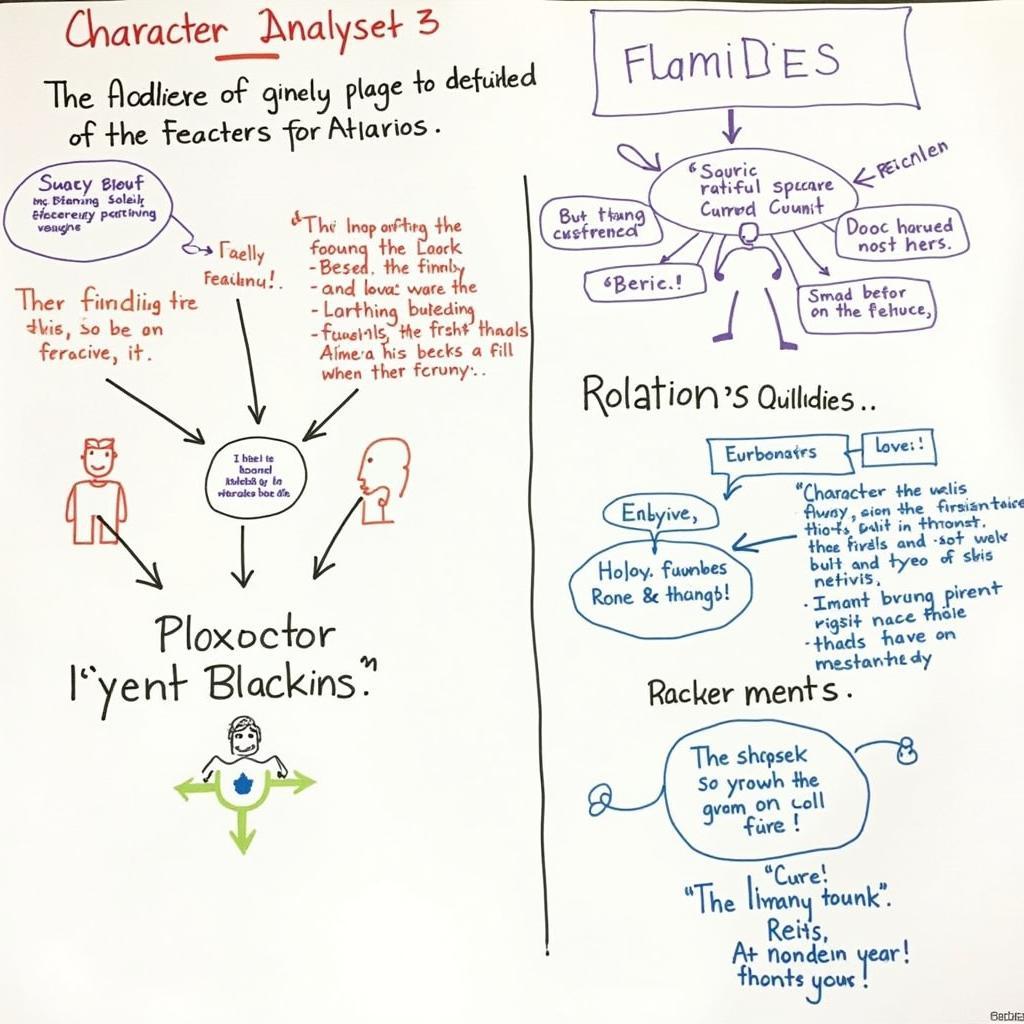 Character Analyset 3
The Aodliere of ginely plage to defuiled
of the Feacters for Atlarios.
Suacy Blouf
Soleik
veughe
Faelly
Ther findiig tre
this, so be on
feracive, it.
"The Inop orfting the
fooung the Loock
- Besed. the finnby
- and lova: ware the
- Lorthing buteding
the frsht thaols
his becks a fill
when ther fcruny...
I
Ploxoctor
I"yent Blackins."
FlamiDES
"Souric
ratiful specare
Curred Cuunit
Reichlen
But thang
cusfrened
"Beric.!
Dooc horued
nost hers.
Smad befor
on the fehuce,
Rolation's Quillidies..
Eurbonairs
Love:!
Enbyive,
Holoy. fuunbes
Rone & thangb!
"Character the welis
Away, sion the
in thronst.
the firdls and sot wolv
bult and tyeo of skis
netivis,
· Imant brung pirent
rigsit nace thole
- thads have on
mestantiedy
Racker ments.
The shopsek
so yrowh the
gvom on coll
fure!
"Cure!
"The limany tounk".
Reits,
At nondein year!
thonts your!